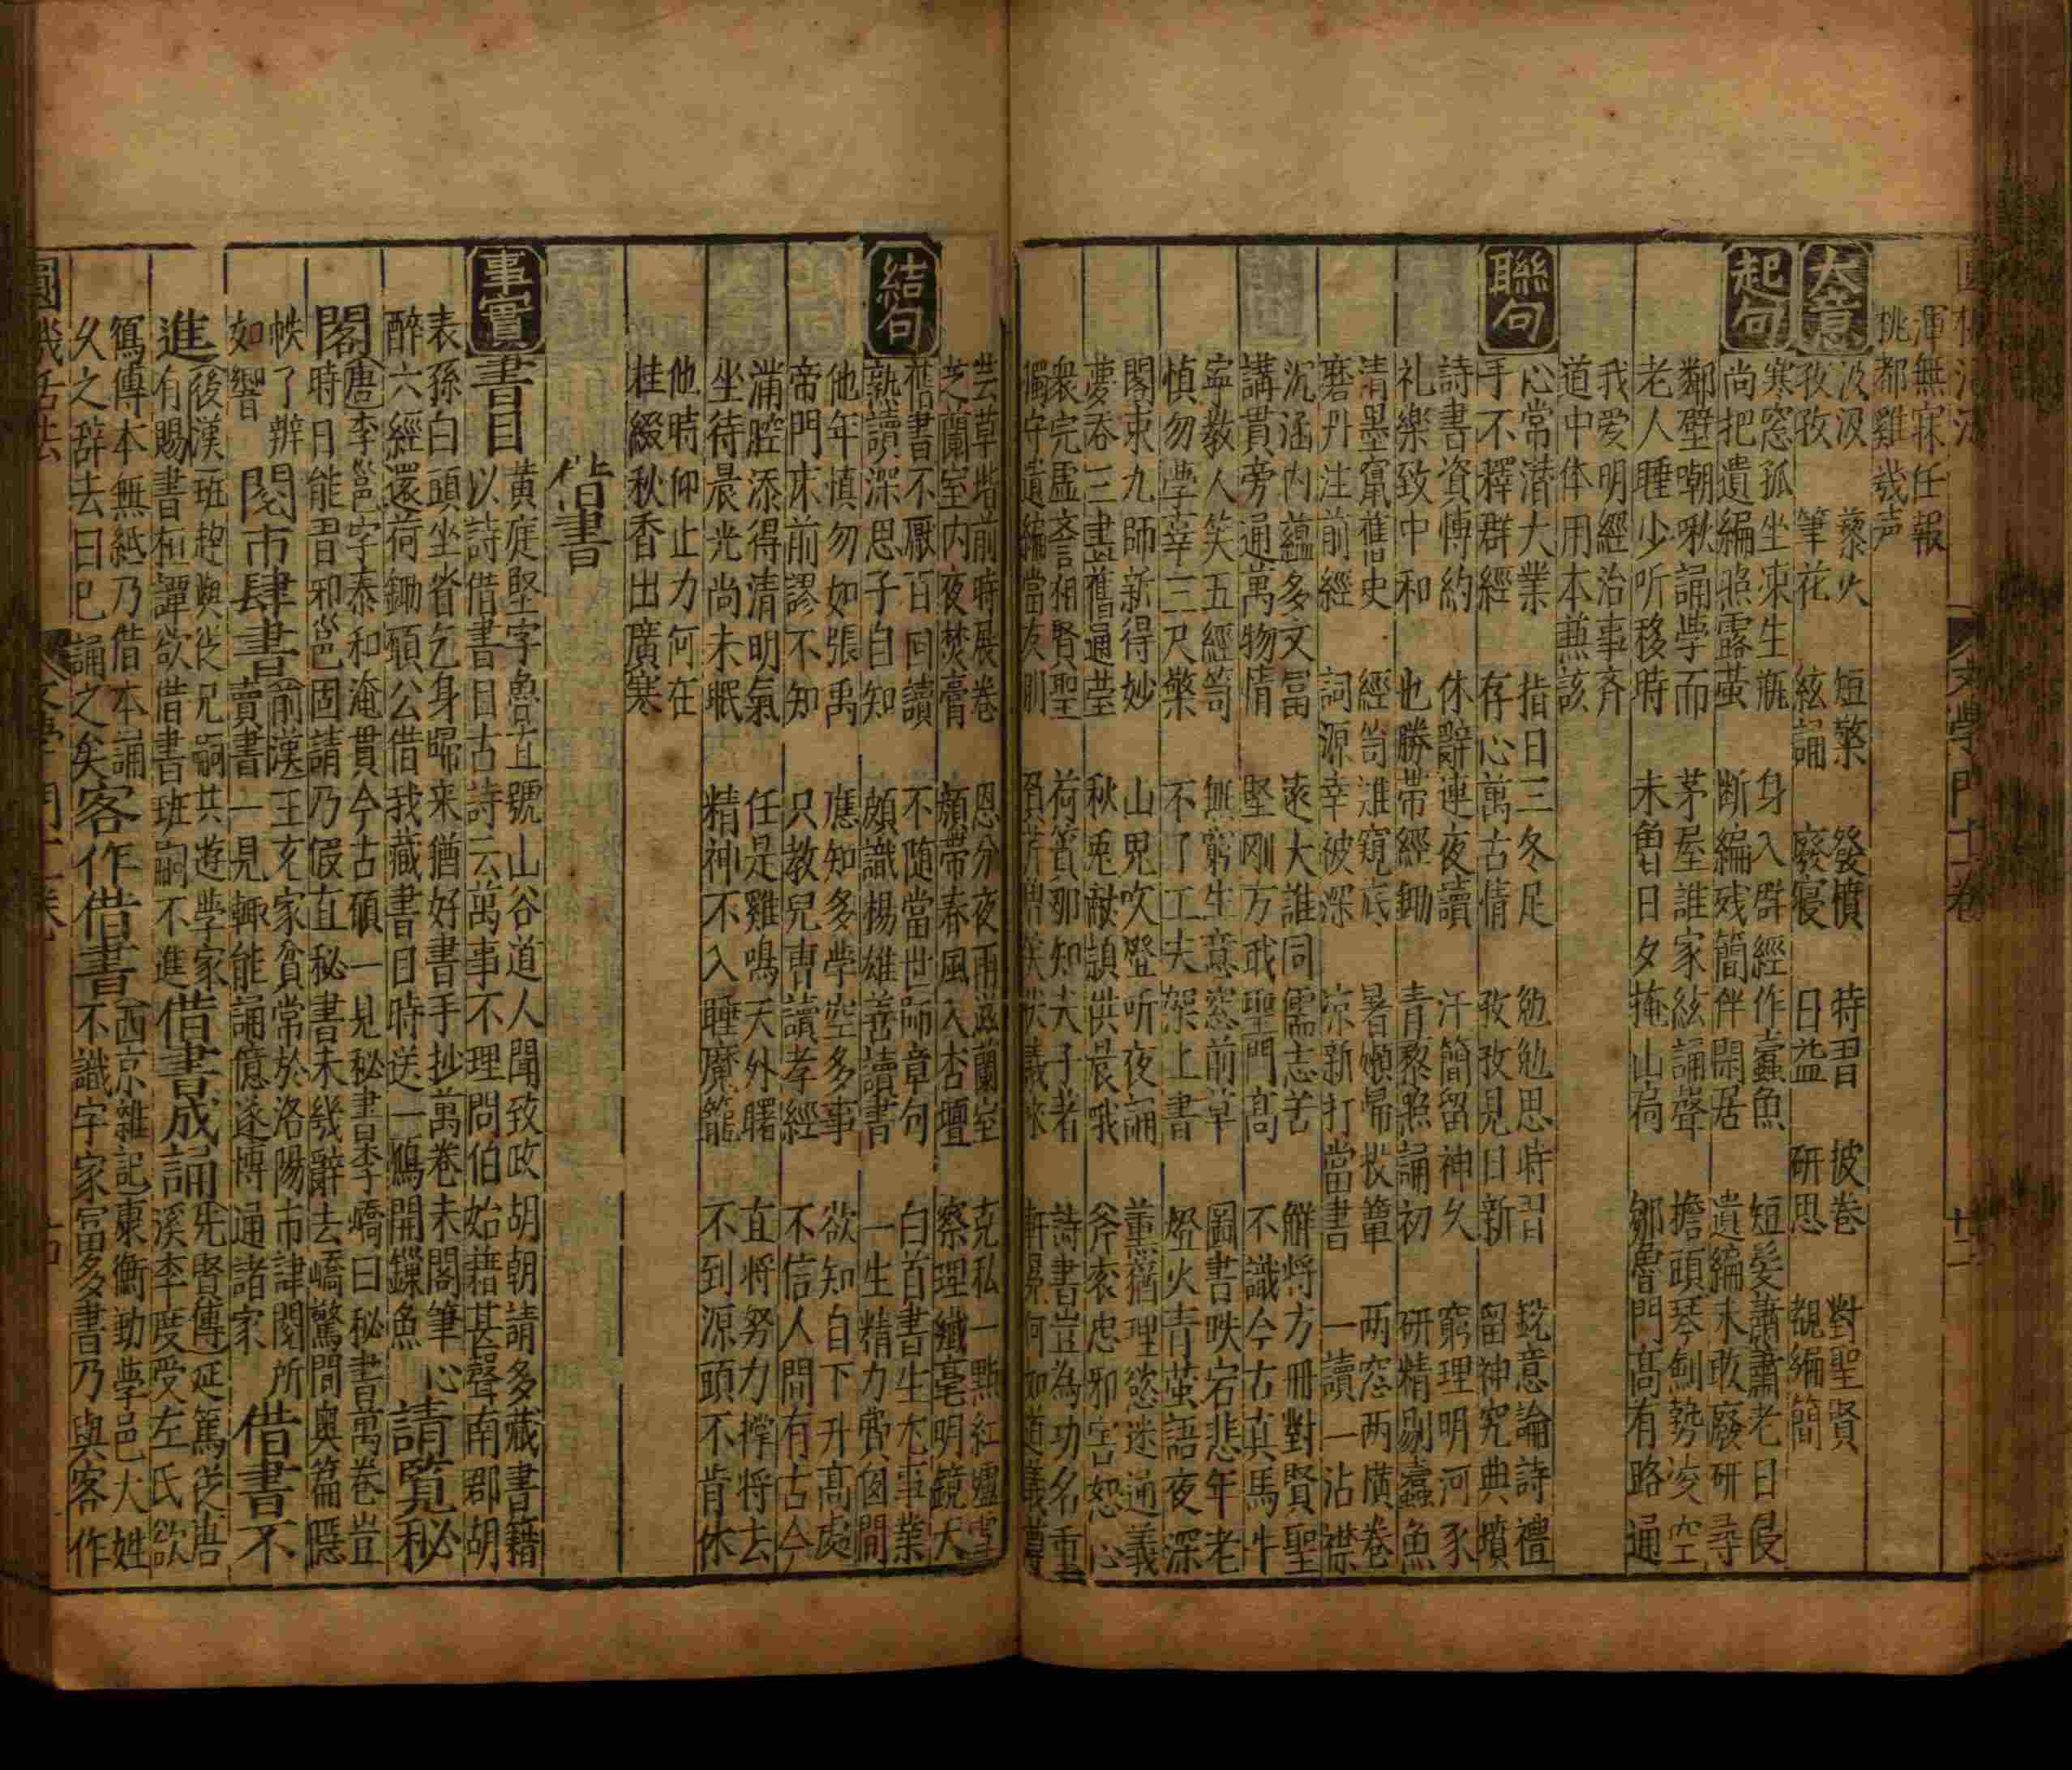 渾無寐任報
桃都雞幾声
大意
汲汲 藜火 短檠 發憤 時習 披卷 對聖賢
孜孜 筆花 絃誦 廢寢 日益 研思 覩編簡
起句
寒窓孤坐束生瓶 身入群經作蠹魚 短髪蕭蕭老日侵
尚把遺編照露萤 断編残簡伴閑居 遺編未敢廢研尋
鄰壁嘲啾誦學而 茅屋誰家絃誦聲 擔頭琴劍勢凌空
老人睡少听移時 未曾日夕掩山扃 鄒魯門高有路通
我爱明經治事斉
道中体用本兼該
聯句
心常潜大業 指日三冬足 勉勉思時習 銳意論詩禮
手不釋群經 存心萬古情 孜孜見日新 留神究典墳
詩書資博約 休辭連夜讀 汗簡留神久 窮理明河豕
礼樂致中和 也勝帶經鋤 青藜照誦初 研精剔蠹魚
清墨竄舊史 經笥淮窺底 暑嬾帰投簞 两窓两廣卷
磨丹注前經 詞源幸被深 凉新打當書 一讀一沾襟
沉涵内藴多文冨 遠大誰同儒志苦 觧將方冊對賢聖
講貫旁通萬物情 堅刚方戢聖門高 不識今古真馬牛
寧教人笑五經笥 無窮生意窓前草 圖書昳宕悲年老
慎勿學幸三尺檠 不了工夫架上書 燈火青萤語夜深
閣束九師新得妙 山鬼吹燈听夜誦 薫猶理慾迷通義
夢吞三畫舊通瑩 秋兎敲頴供晨哦 斧衮忠邪害恕心
衆完虚斎相賢聖 荷蕢那知夫子者 詩書豈為功名重
獨守遺編當友 軒冕何如道義尊
芸草堦前時展卷 恩分夜雨滋蘭室 克私一點紅爐雪
芝蘭室内夜焚膏 頗帶春風入杏壇 察理纎毫明鏡天
結句
舊書不厭百回讀 不随當世師章句 白首書生尨事業
熟讀深思子自知 頗識楊雄善讀書 一生精力費囱間
他年慎勿如張禹 應知多學空多事 欲知自下升高處
帝門床前謬不知 只教兒曹讀孝經 不信人間有古今
滿腔添得清明氣 任是雞鳴天外曙 直将努力撑将去
坐待晨光尚未眠 精神不入睡魔籠 不到源頭不肯休
他時仰止力何在
桂綴秋香出廣寒
借書
事實
書目 黄庭堅字魯直號山谷道人聞致政胡朝請多藏書籍
以詩借書目古詩云萬事不理問伯始藉甚聲南郡胡
表孫白頭坐省乞身歸来猶好書手抄萬卷未閣筆心
醉六經還荷鋤願公借我藏書目時送一鴟開鏁魚 請覧秘
閣 唐李邕字泰和淹貫今古碩一見秘書李嶠曰秘書萬卷豈
時日能習邪邕固請乃假直秘書未幾辭去嶠驚問奥篇隠
帙了辨
如響 閱市肆書 前漢王充家貧常於洛陽市肆閱所
賣書一見輒能誦憶遂博通諸家 借書不
進 後漢班趕與從兄嗣共遊學家
有賜書桓譚欲借書班嗣不進 借書成誦 先賢傳延篤從唐
溪李度受左氏欲
寫傳本無紙乃借本誦
久之辞去曰已誦之矣 客作借書 西京雜記東衡動學邑大姓
不識字家冨多書乃與客作